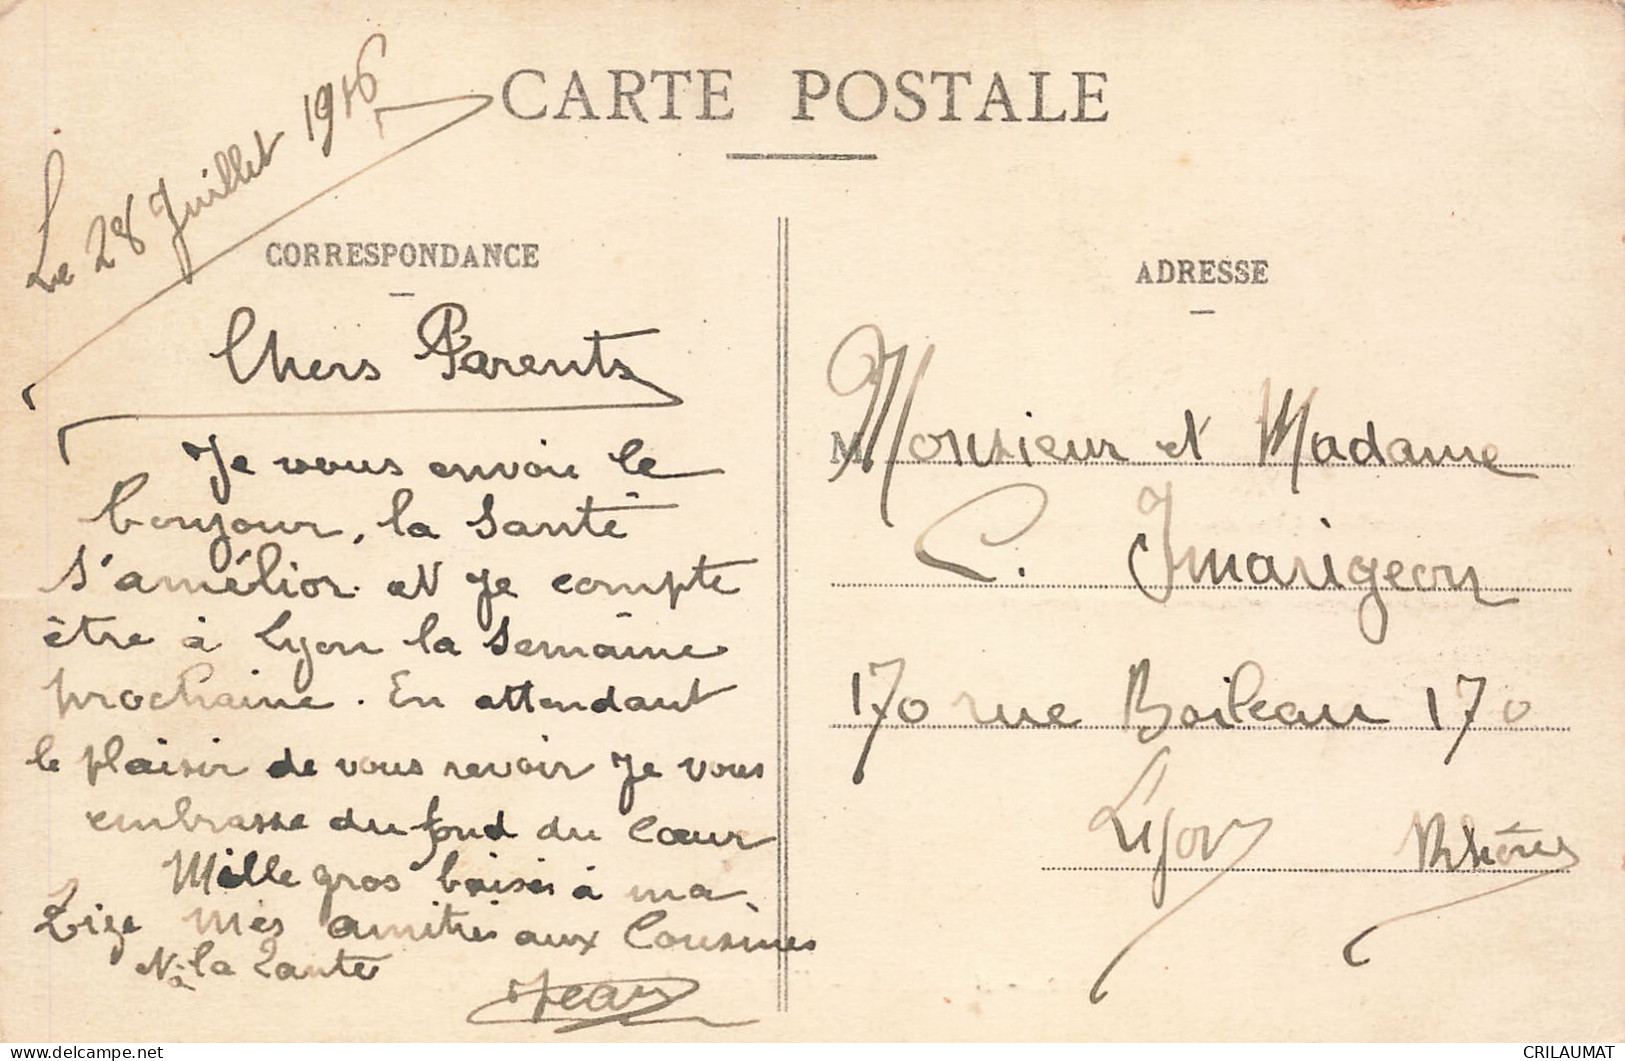 CARTE POSTALE
Le 28 Juillet 1916
CORRESPONDANCE
Chers Parents
Je vous envoie le
bonjour, la santé
s'amélior. et je compte
être à Lyon la semaine
prochaine. En attendant
le plaisir de vous revoir je vous
embrasse du fond du Cœur
Mille gros baisés à ma
Zize Mes amitiés aux Cousines
et à la Tante
Jean
ADRESSE
M
Monsieur et Madame
C. Imarigeon
170 rue Boileau 170
Lyon Rhône
CRILAUMAT